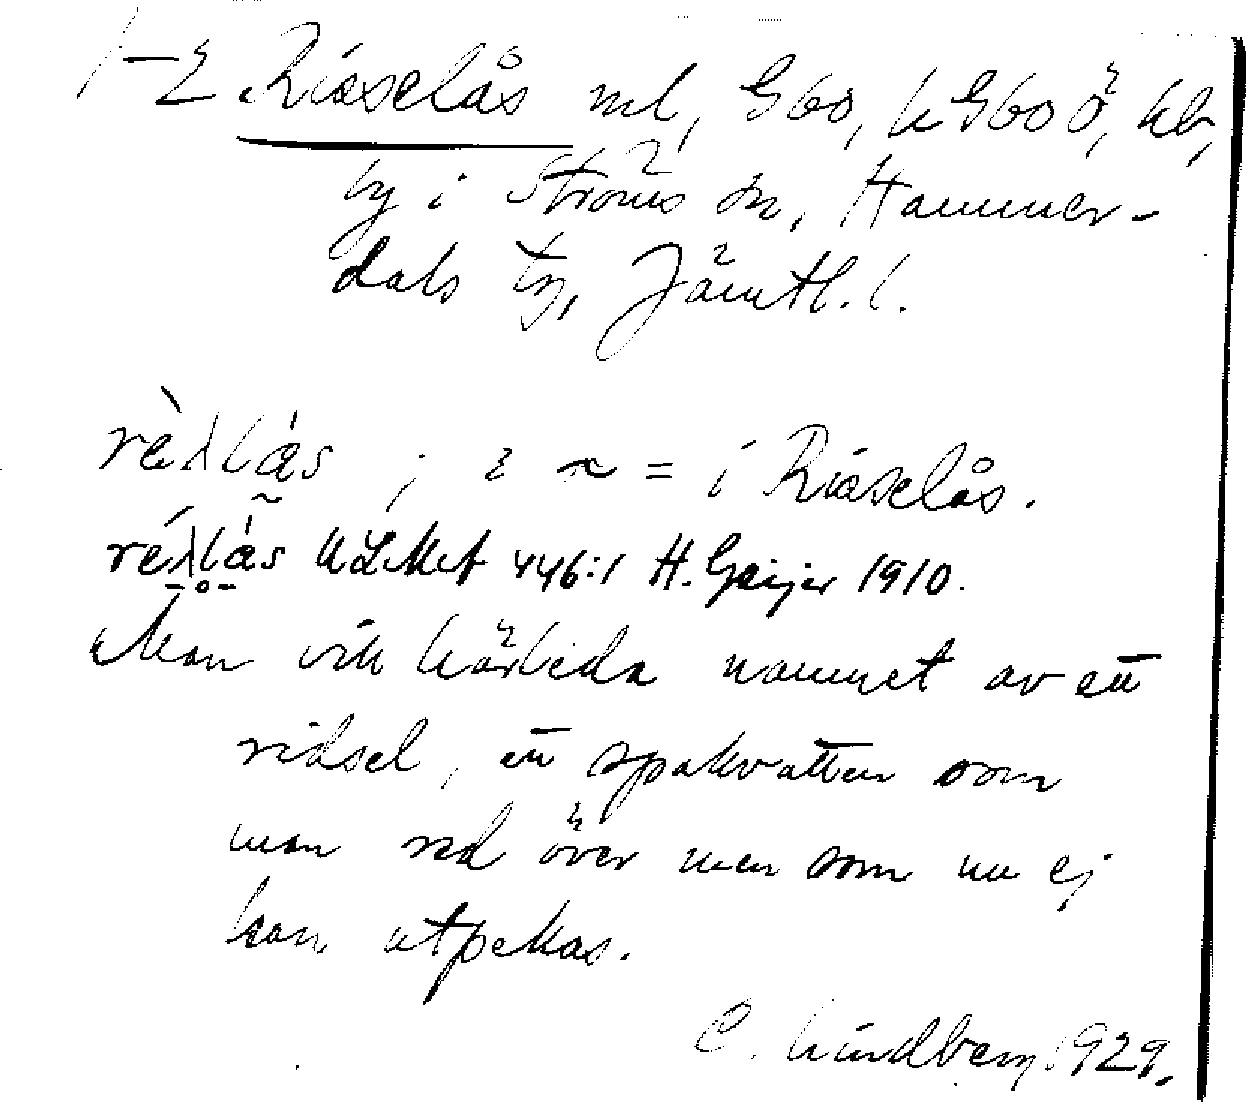 1-2 Risselås ml, G60, kG60Ö, kb,
by i Ströms sn, Hammer-
dals tg, Jämtl. l.
rèλlås ; i ~ = i Risselås.
réλlås ULMA 446:1 H. Geijer 1910.
Man vill härleda namnet av ett
ridsel, ett spakvatten som
man red över men som nu ej
kan utpekas.
C. Lindberg 1929.